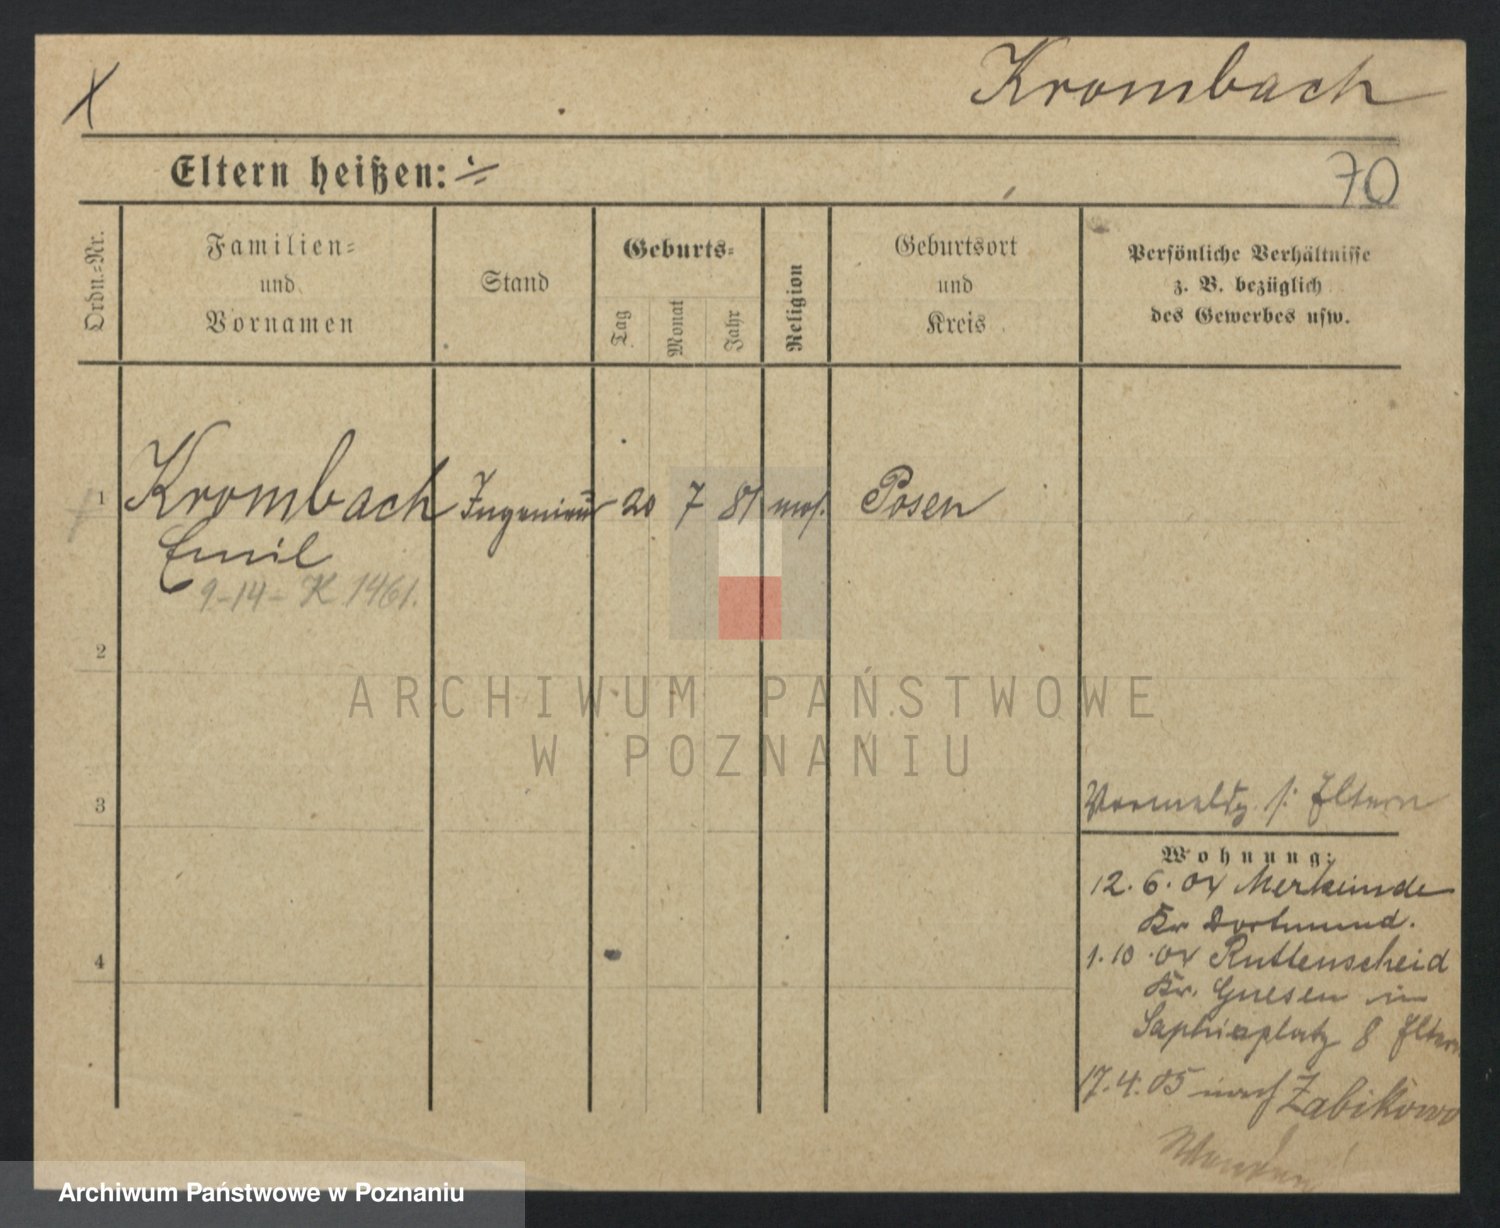 Krombach
Eltern heißen: ÷
70
Ordn.=Nr.
Familien=
und
Vornamen
Stand
Geburts=
Tag
Monat
Jahr
Religion
Geburtsort
und
Kreis
Persönliche Verhältnisse
z. B. bezüglich
des Gewerbes usw.
1 Krombach Ingenieur 20 7 81 mos. Posen
Emil
9-14- K 1461.
2
ARCHIWUM PAŃSTWOWE
W POZNANIU
3
Vormeldg. s: Eltern
Wohnung:
12. 6. 04
Kr Dortmund.
1. 10. 04 Ruttenscheid
Kr. Gnesen in
8 Eltern
17. 4. 05 nach Żabikowo
4
Wenden
Archiwum Państwowe w Poznaniu